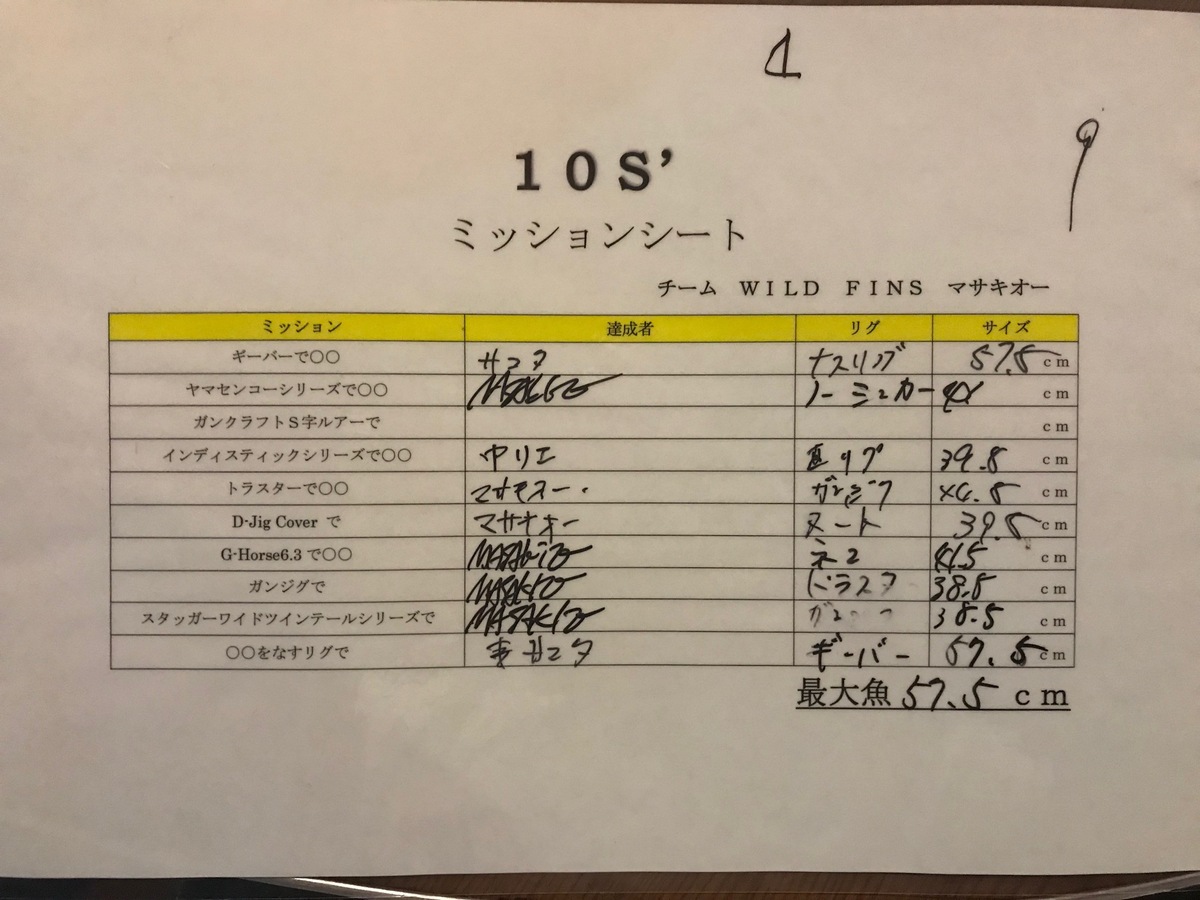 10S’
ミッションシート
チーム WILD FINS マサキオー
ミッション 達成者 リグ サイズ
ギーバーで〇〇 サコタ ナスリグ 57.5 cm
ヤマセンコーシリーズで〇〇 ノーシンカー cm
ガンクラフトS字ルアーで cm
インディスティックシリーズで〇〇 中リエ 直リグ 39.8 cm
トラスターで〇〇 ガンジグ cm
D-Jig Cover で マサキオー 39.5 cm
G-Horse6.3で〇〇 MASAKIO ネコ 41.5 cm
ガンジグで MASAKIO トラスタ 38.5 cm
スタッガーワイドツインテールシリーズで MASAKIO 38.5 cm
〇〇をなすリグで サコタ ギーバー 57.5 cm
最大魚 57.5 cm